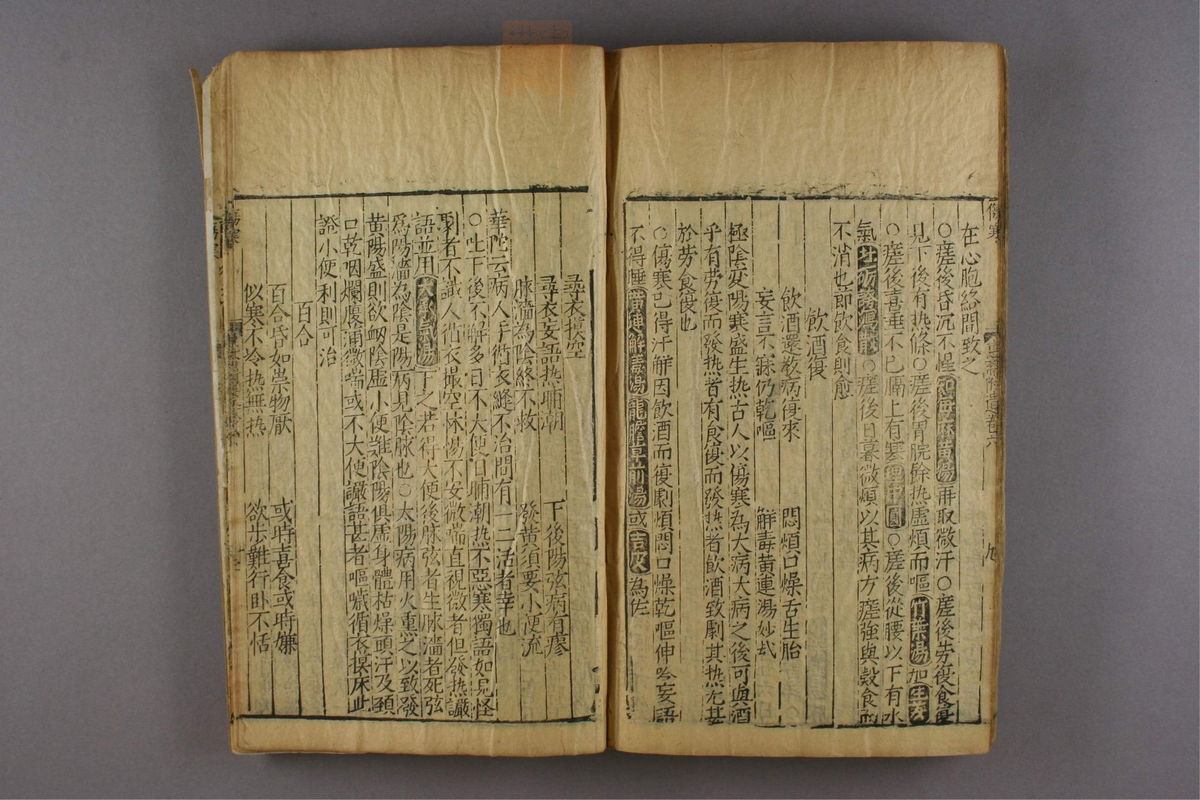 在心胞絡間致之
○瘥後昏沉不醒知母麻黄湯再取微汗○瘥後劳復食復
見下後有热條○瘥後胃脘餘热虛煩而嘔竹葉湯加生姜
○瘥後喜唾不已膈上有寒理中圓○瘥後從腰以下有水
氣牡蛎澤瀉散○瘥後日暮微煩以其病方瘥強與穀食而
不消也節飲食則愈
飲酒復
飲酒還敎病復來 悶煩口燥舌生胎
妄言不寐仍乾嘔 解毒黄連湯妙哉
極陰变陽寒盛生热古人以傷寒為大病大病之後可與酒
乎有劳復而發热者有食復而發热者飲酒致劇其热尤甚
於劳食復也
○傷寒已得汗解因飲酒而復劇煩悶口燥乾嘔伸吟妄語
不得睡黄連解毒湯龍胆草煎湯或為佐
尋衣撮空
尋衣妄語热晡潮 下後陽弦病有瘳
脉濇為陰終不救 發黄須要小便流
華陀云病人手循衣縫不治間有一二活者幸也
○吐下後不解多日不大便日晡潮热不惡寒獨語如見怪
劇者不識人循衣撮空怵惕不安微喘直視微者但發热讝
語並用大承気湯下之若得大便後脉弦者生脉濇者死弦
為陽濇為陰是陽病見陰脉也○太陽病用火熏之以致發
黄陽盛則欲衂陰虛小便難陰陽俱虛身體枯燥頭汗及頚
口乾咽爛腹滿微喘或不大便讝語甚者嘔噦循衣摸床此
證小便利則可治
百合
百合昏如祟物厭 或時喜食或時嫌
似寒不冷热無热 欲步難行卧不恬